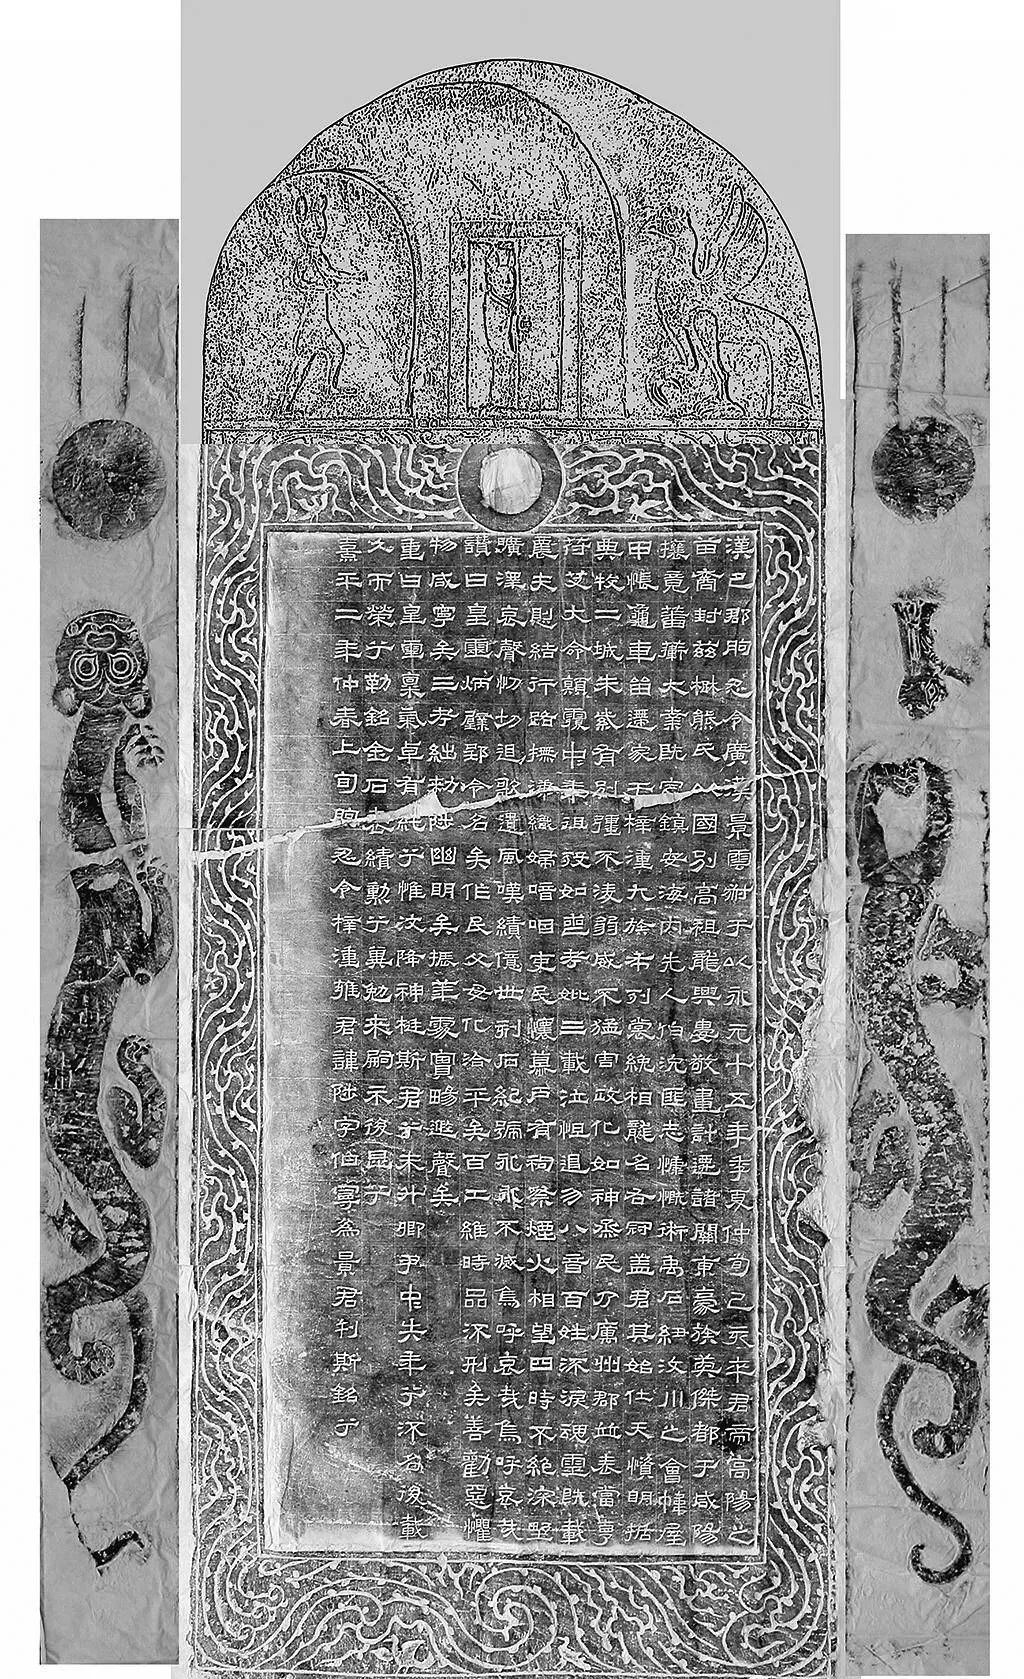 漢巴郡朐忍令廣漢景雲叔于以永元十五年季夏仲旬己亥卒君帝高陽之
苗裔封茲楚熊氏以國別高祖龍興婁敬畫計遷諸關東豪族英傑都于咸陽
攘竟蕃衛大業既定鎮安海內先人伯沇匪志慷慨術禹石紐汶川之會幃屋
甲帳龜車留遷家于梓潼九族布列裳絻相龍名右冠蓋君其始仕天資明括
典牧二城朱紫有別彊不凌弱威不猛害政化如神烝民乃厲州郡並表當亨
苻艾大命顛覆中年徂歿如喪考妣三載泣怛遏勿八音百姓流淚魂靈既載
農夫惻結行路撫涕織婦喑咽吏民懷慕戶有祠祭煙火相望四時不絕深野
曠澤哀聲忉切追歌遺風嘆績億世刻石紀號永永不滅烏呼哀哉烏呼哀哉
讚曰皇靈炳璧郢令名矣作民父母化洽平矣百工維時品流刑矣善勸惡懼
物咸寧矣三考絀敕陟幽明矣振華處實暘遐聲矣
重曰皇靈稟氣卓有純兮惟汶降神梃斯君兮未升卿尹中失年兮流名後載
久而榮兮勒銘金石表績勳兮冀勉來嗣示後昆兮
熹平二年仲春上旬朐忍令梓潼雍君諱陟字伯寧為景君刊斯銘兮